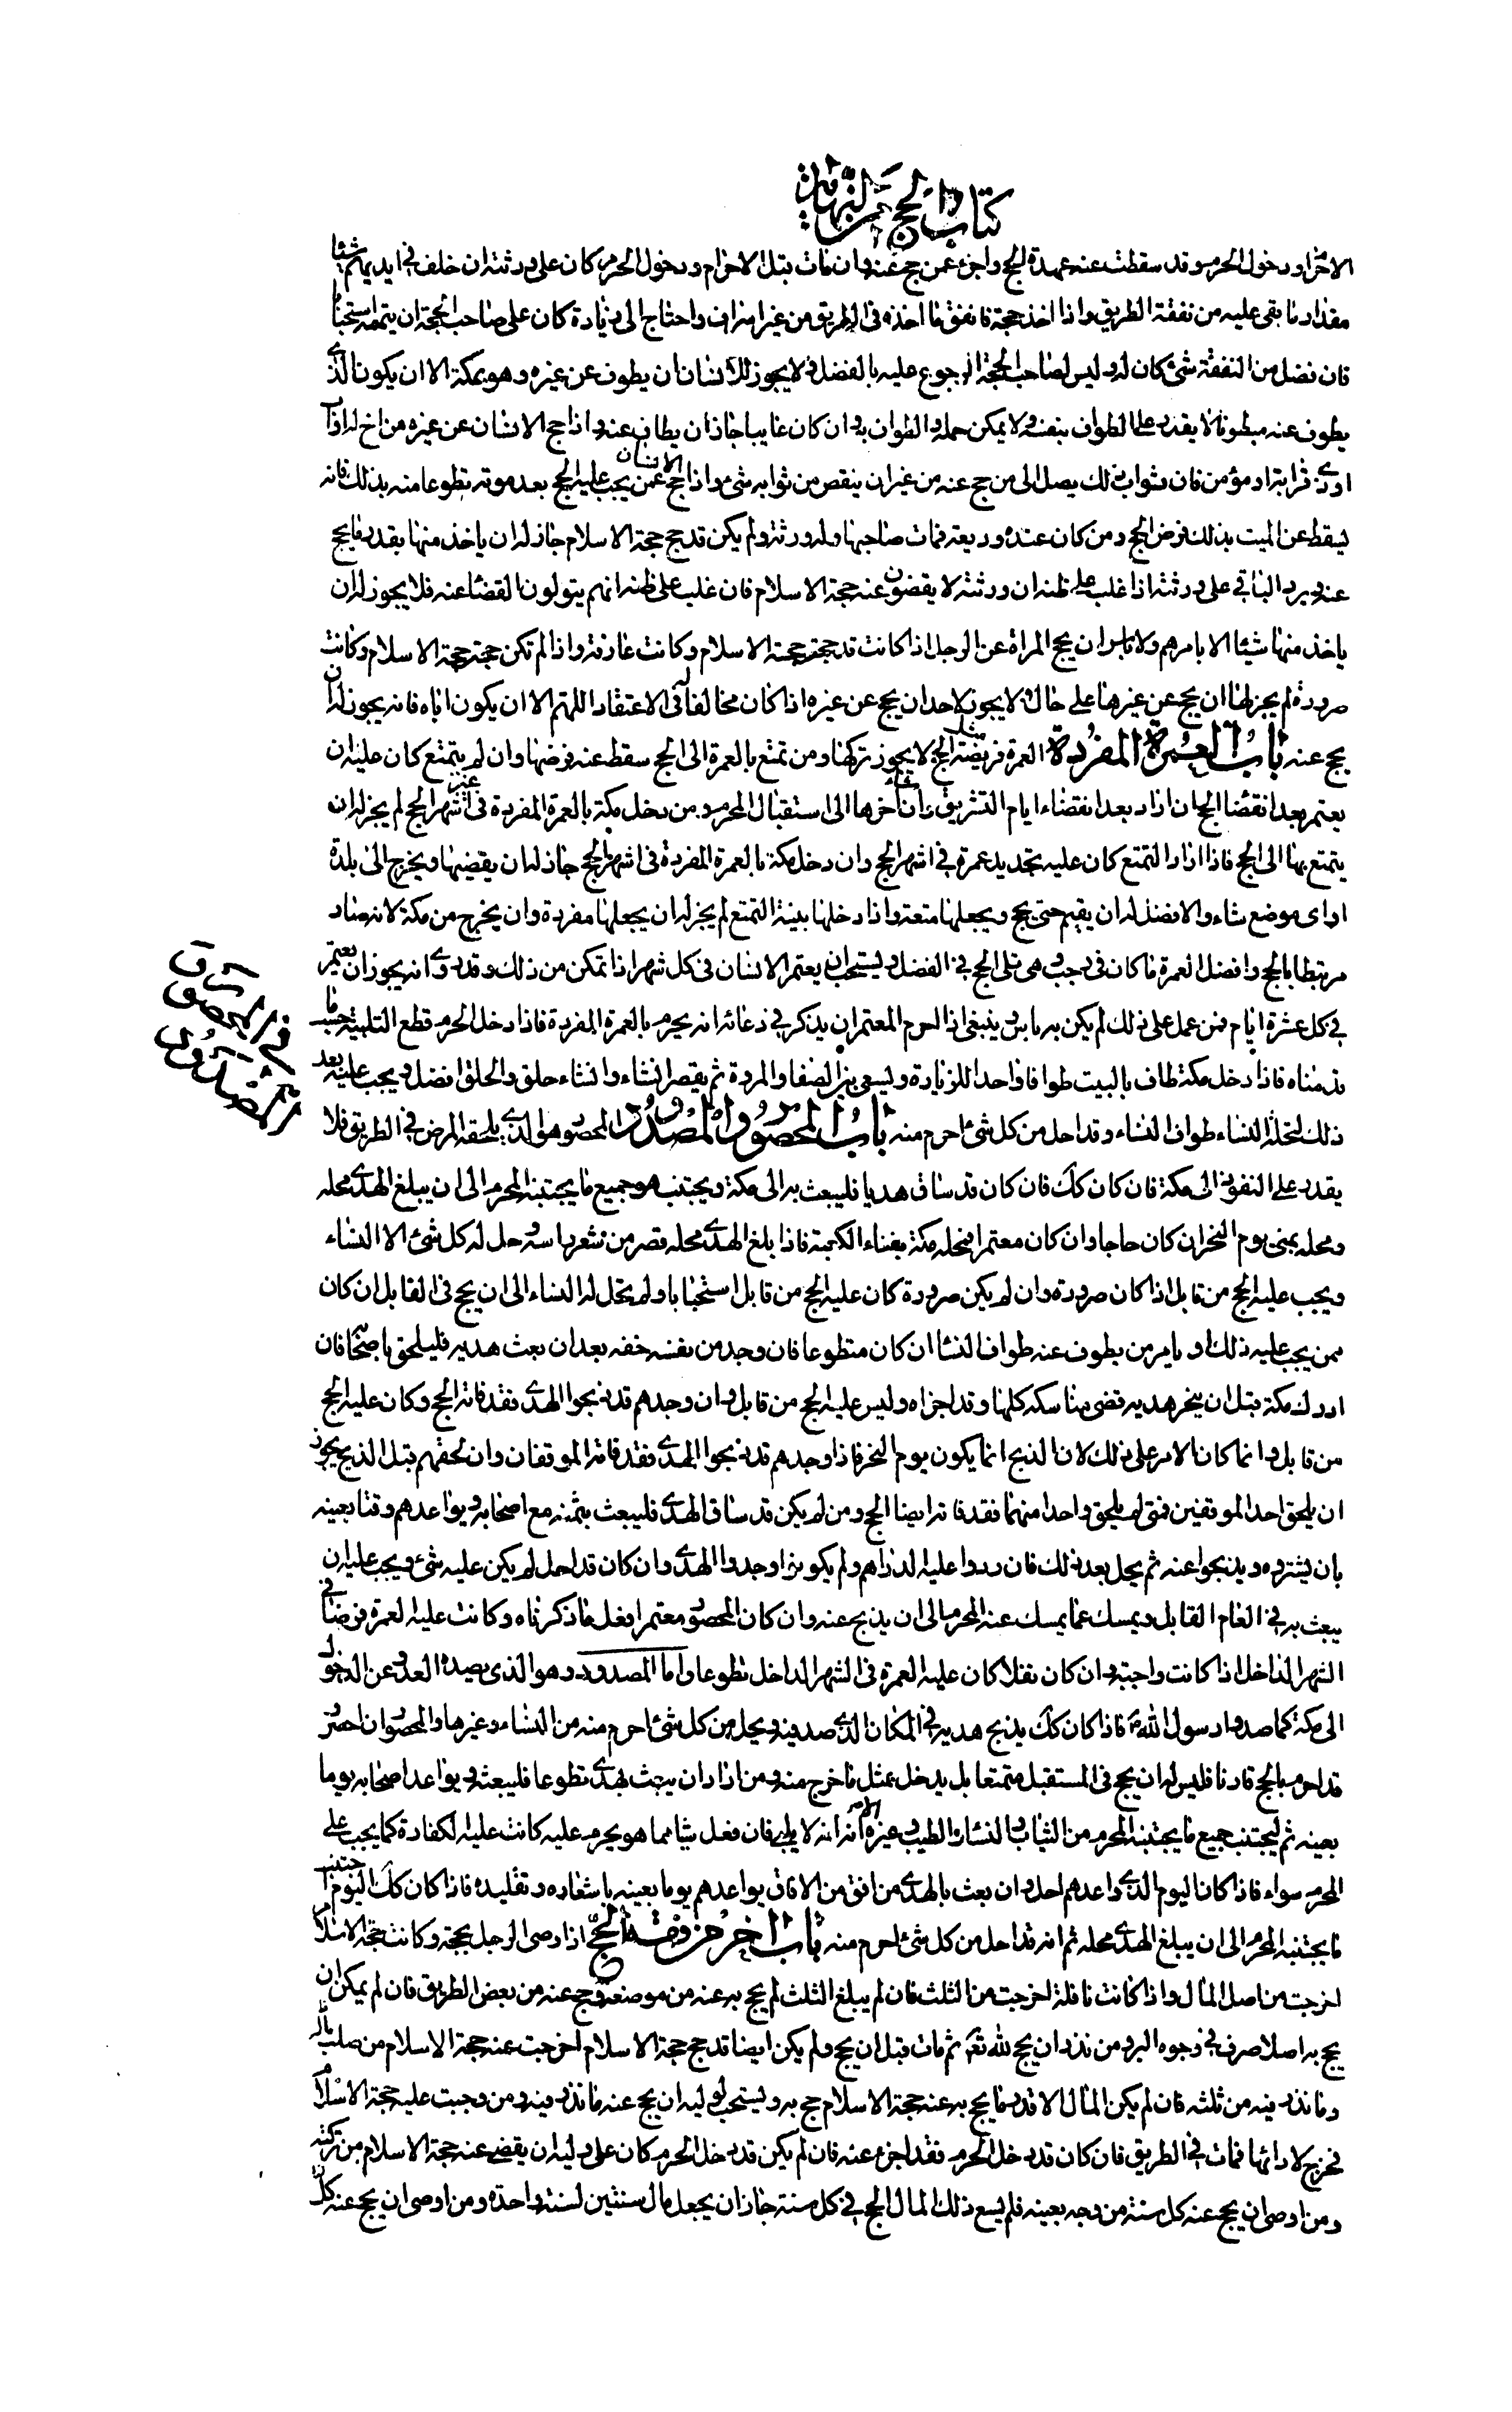 كتاب الحج من النهاية
الاحرام ودخول الحرم وقد سقطت عنه عهدة الحج واجزء عمن حج عنه وان مات قبل الاحرام ودخول الحرم كان على ورثته ان خلف في ايديهم شيئا
مقدار ما بقى عليه من نفقة الطريق واذا اخذ حجة فانفق ما اخذه في الطريق من غير اسراف واحتاج الى زيادة كان على صاحب الحجة ان يتممه استحبابا
فان فضل من النفقة شئ كان له وليس لصاحب الحجة الرجوع عليه بالفضل ولا يجوز للانسان ان يطوف عن غيره وهو بمكة الا ان يكون الذي
يطوف عنه مبطونا لا يقدر على الطواف بنفسه ولا يمكن حمله والطواف به وان كان غايبا جاز ان يطاف عنه واذا حج الانسان عن غيره من اخ له او اب
او ذي قرابة او مؤمن فان ثواب ذلك يصل الى من حج عنه من غير ان ينقص من ثوابه شئ واذا حج الانسان عمن يجب عليه الحج بعد موته تطوعا منه بذلك فانه
يسقط عن الميت بذلك فرض الحج ومن كان عنده وديعة فمات صاحبها وله ورثة ولم يكن قد حج حجة الاسلام جاز له ان ياخذ منها بقدر ما يحج
عنه ويرد الباقي على ورثته اذا غلب على ظنه ان ورثته لا يقضون عنه حجة الاسلام فان غلب على ظنه انهم يتولون القضا عنه فلا يجوز له ان
ياخذ منها شيئا الا بامرهم ولا باس ان يحج المراة عن الرجل اذا كانت قد حجت حجة الاسلام وكانت عارفة واذا لم تكن حجت حجة الاسلام وكانت
صرورة لم يجز لها ان يحج عن غيرها على حال ولا يجوز لاحد ان يحج عن غيره اذا كان مخالفا له في الاعتقاد اللهم الا ان يكون اباه فانه يجوز له ان
يحج عنه باب العمرة المفردة العمرة فريضة مثل الحج لا يجوز تركها ومن تمتع بالعمرة الى الحج سقط عنه فرضها وان لم يتمتع كان عليه ان
يعتمر بعد انقضا الحج ان اراد بعد انقضاء ايام التشريق وان شاء اخرها الى استقبال المحرم ومن دخل مكة بالعمرة المفردة في غير اشهر الحج لم يجز له ان
يتمتع بها الى الحج فاذا اراد التمتع كان عليه تجديد عمرة في اشهر الحج وان دخل مكة بالعمرة المفردة في اشهر الحج جاز له ان يقضيها ويخرج الى بلده
او اى موضع شاء والافضل له ان يقيم حتى يحج ويجعلها متعة واذا دخلها بنية التمتع لم يجز له ان يجعلها مفردة وان يخرج من مكة لانه صار
مرتبطا بالحج وافضل العمرة ما كان في رجب وهى تلى الحج في الفضل ويستحب ان يعتمر الانسان في كل شهر اذا تمكن من ذلك وقد روي انه يجوز ان يعتمر
في كل عشرة ايام فمن عمل على ذلك لم يكن به باس وينبغى اذا احرم المعتمر ان يذكر في دعائه انه يحرم بالعمرة المفردة فاذا دخل الحرم قطع التلبية حسب ما
قدمناه فاذا دخل مكة طاف بالبيت طوافا واحدا للزيارة ويسعى بين الصفا والمروة ثم يقصر ان شاء وان شاء حلق والحلق افضل ويجب عليه بعد
ذلك لتحلة النساء طواف النساء وقد احل من كل شئ احرم منه باب المحصور والمصدود المحصور هو الذي يلحقه المرض في الطريق فلا
يقدر على النفوذ الى مكة فان كان كك فان كان قد ساق هديا فليبعث به الى مكة ويجتنب هو جميع ما يجتنبه المحرم الى ان يبلغ الهدي محله
ومحله بمنى يوم النحر ان كان حاجا وان كان معتمرا فمحله مكة بفناء الكعبة فاذا بلغ الهدي محله قصر من شعر راسه وحل له كل شئ الا النساء
ويجب عليه الحج من قابل اذا كان صرورة وان لم يكن صرورة كان عليه الحج من قابل استحبابا ولم تحل له النساء الى ان يحج في القابل ان كان
ممن يجب عليه ذلك او يامر من يطوف عنه طواف النسا ان كان متطوعا فان وجد من نفسه خفه بعد ان بعث هديه فليلحق باصحابه فان
ادرك مكة قبل ان ينحر هديه قضى مناسكه كلها وقد اجزاه وليس عليه الحج من قابل وان وجدهم قد ذبحوا الهدي فقد فاته الحج وكان عليه الحج
من قابل وانما كان الامر على ذلك لان الذبح انما يكون يوم النحر فاذا وجدهم قد ذبحوا الهدي فقد فاته الموقفان وان لحقهم قبل الذبح يجوز
ان يلحق احد الموقفين فمتى لم يلحق واحدا منهما فقد فاته ايضا الحج ومن لم يكن قد ساق الهدي فليبعث بثمنه مع اصحابه ويواعدهم وقتا بعينه
بان يشتروه ويذبحوا عنه ثم يحل بعد ذلك فان ردوا عليه الدراهم ولم يكونوا وجدوا الهدي وان كان قد احل لم يكن عليه شئ ويجب عليه ان
يبعث به في العام القابل ويمسك عما يمسك عنه المحرم الى ان يذبح عنه وان كان المحصور معتمرا فعل ما ذكرناه وكانت عليه العمرة فرضا في
الشهر الداخل اذا كانت واجبة وان كان نفلا كان عليه العمرة في الشهر الداخل تطوعا واما المصدود وهو الذي يصده العدو عن الدخول
الى مكة كما صدوا رسول الله ص فاذا كان كك يذبح هديه في المكان الذي صد فيه ويحل من كل شئ احرم منه من النساء وغيرها والمحصور ان احصر و
قد احرم بالحج قارنا فليس له ان يحج في المستقبل متمتعا بل يدخل بمثل ما خرج منه ومن اراد ان يبعث بهدي تطوعا فليبعثه ويواعد اصحابه يوما
بعينه ثم ليجتنب جميع ما يجتنبه المحرم من الثياب والنساء والطيب وغيره الا انه لا يلبي فان فعل شيئا مما هو يحرم عليه كانت عليه الكفارة كما يجب على
المحرم سواء فاذا كان اليوم الذي واعدهم احل وان بعث بالهدي من افق من الافاق يواعدهم يوما بعينه باشعاره وتقليده فاذا كان كك اليوم اجتنب
ما يجتنبه المحرم الى ان يبلغ الهدي محله ثم انه قد احل من كل شئ احرم منه باب اخر من فقه الحج اذا اوصى الرجل بحجة وكانت حجة الاسلام
اخرجت من اصل المال واذا كانت نافلة اخرجت من الثلث فان لم يبلغ الثلث لم يحج به عنه من موضعه وحج عنه من بعض الطريق فان لم يمكن ان
يحج به اصلا صرف في وجوه البر ومن نذر ان يحج لله تعم ثم مات قبل ان يحج ولم يكن ايضا قد حج حجة الاسلام اخرجت عنه حجة الاسلام من صلب ماله
وما نذر فيه من ثلثه فان لم يكن المال الا قدر ما يحج به عنه حجة الاسلام حج به ويستحب لوليه ان يحج عنه ما نذر فيه ومن وجبت عليه حجة الاسلام
فخرج لادائها فمات في الطريق فان كان قد دخل الحرم فقد اجزء عنه فان لم يكن قد دخل الحرم كان على وليه ان يقضي عنه حجة الاسلام من تركته
ومن اوصى ان يحج عنه كل سنة من وجه بعينه فلم يسع ذلك المال الحج في كل سنة جاز ان يجعل مال سنتين لسنة واحدة ومن اوصى ان يحج عنه كل